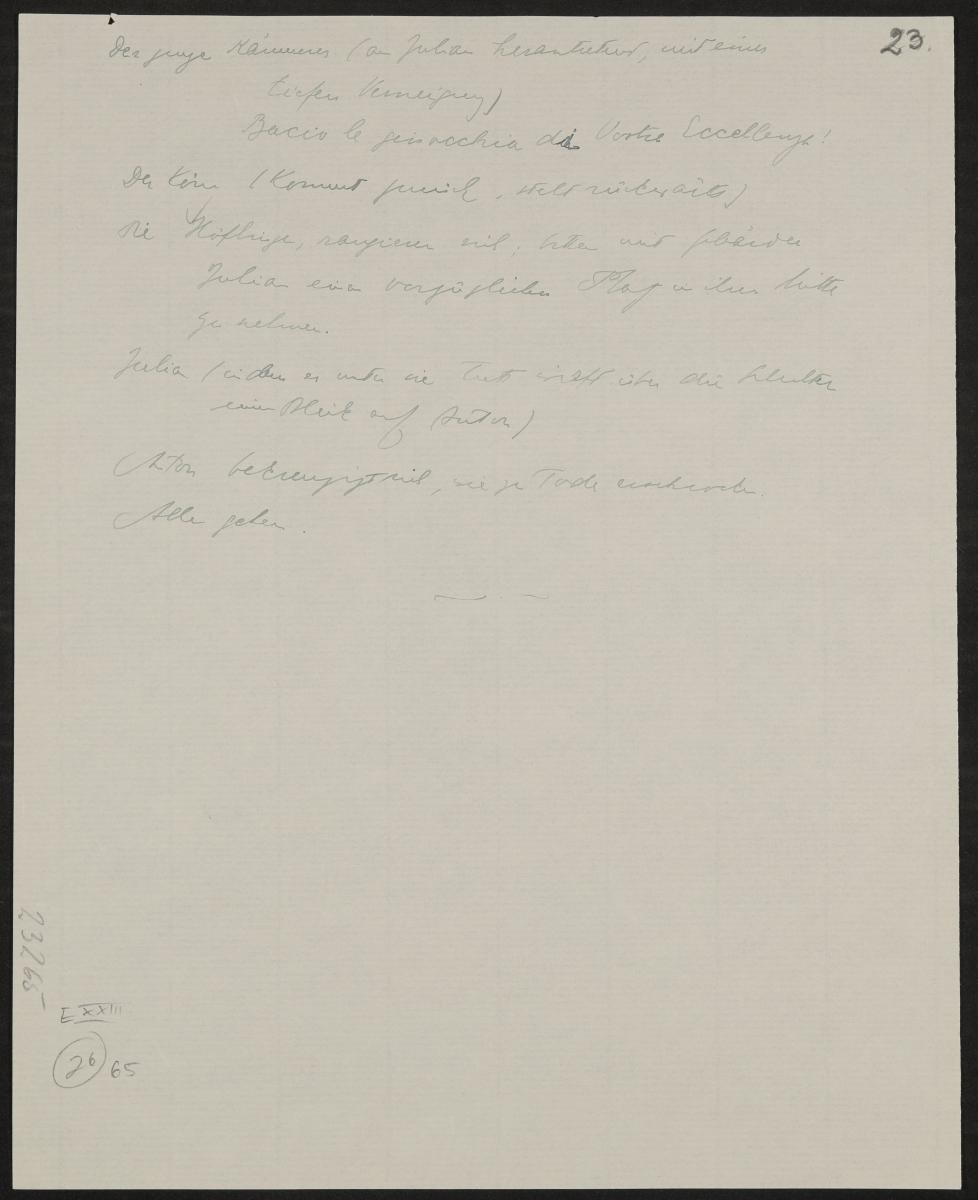 23.
Der junge Kämmerer (an Julian herantretend, mit einer
tiefen Verneigung)
Bacio le ginocchia di Vostra Eccellenza!
Der König (kommt zurück, steht rückwärts)
Die Höflinge, rangieren sich, bitten mit Gebärden
Julian einen vorzüglichen Platz in ihrer Mitte
zu nehmen.
Julian (indem er unter sie tritt wirft über die Schulter
einen Blick auf Anton)
Anton bekreuzigt sich, wie zu Tode erschrocken.
Alle gehen.
23265
E XXIII
26 65